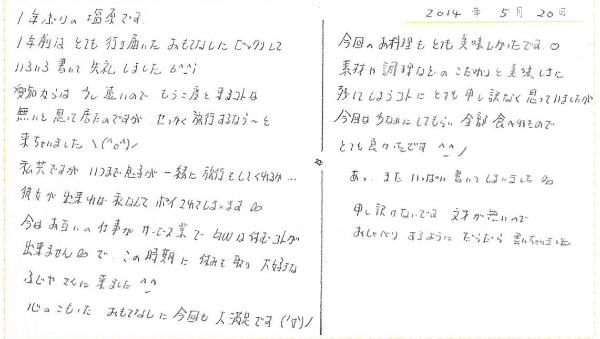 1年ぶりの塩原です。
1年前は とても行き届いた おもてなしにビックリして
いろいろ書いて失礼しました
愛知からは 少し遠いので もう二度と来るコトは
無いと思って居たのですが、せっかく旅行するなら〜と
来ちゃいました \(^o^)/
私共ですが いつまで息子が一緒に旅行をしてくれるか…
彼女が出来れば 私なんて ポイされてしまいます
今はお互いの仕事がサービス業で GWは休むコトが
出来ません で、この時期に休みを取り 大好きな
ふじやさんに来ました ^^
心のこもった おもてなしに今回も大満足です (^▽^)/
2014年 5月 20日
今回のお料理も とても美味しかったです。
素材や調理などのこだわりと美味しさに
残してしまうコトに とても申し訳なく思っていましたが
今回は少なめにしてもらい 全部食べれたので
とても良かったです ^^/
あっ、また いっぱい書いてしまいました
申し訳ないです 文才が無いので
おしゃべりするように だらだら 書いちゃいました